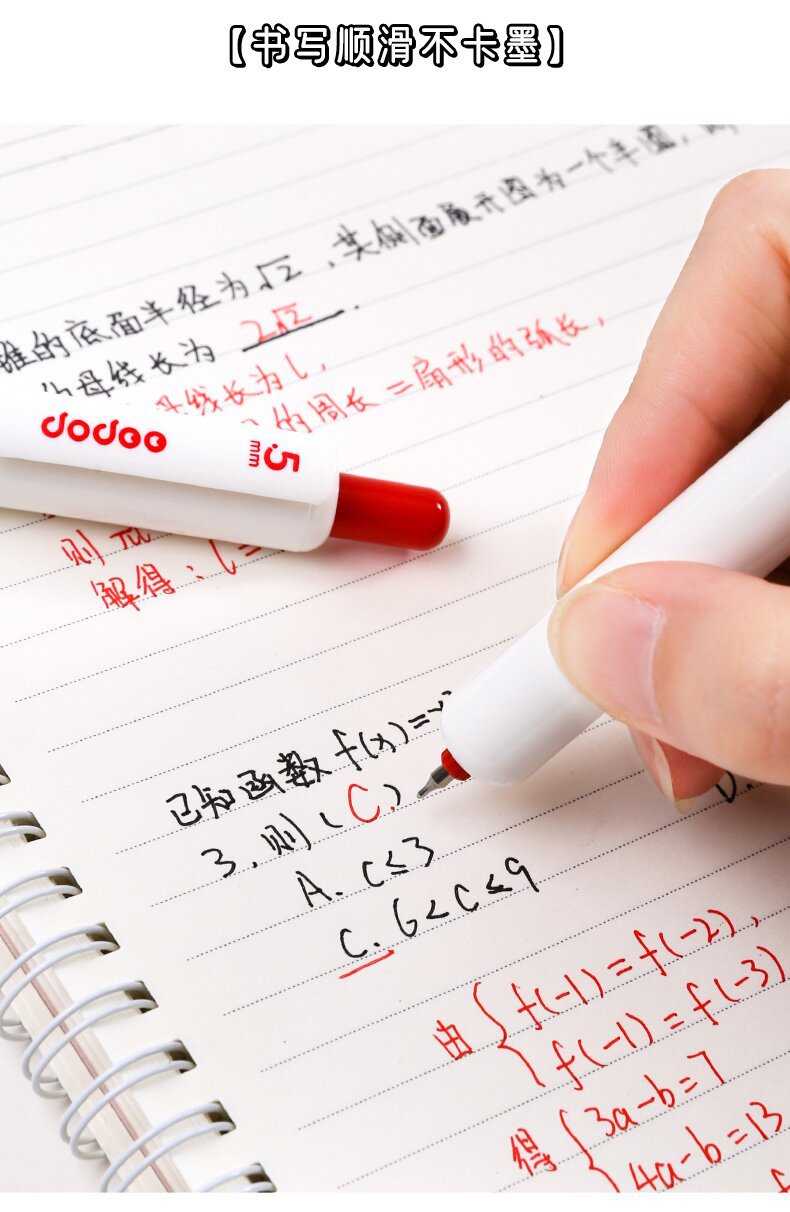 【书写顺滑不卡墨】
锥的底面半径为√2，其侧面展开图为一个半圆，
母线长为 2√2.
母线长为l，
的周长=扇形的弧长，
dodoo
.5
mm
则
解得：l=
已知函数f(x)=
3.则(C.)
A. c≤3
C. 6<c≤9
由{f(-1)=f(-2),
f(-1)=f(-3)
得{3a-b=7
4a-b=13